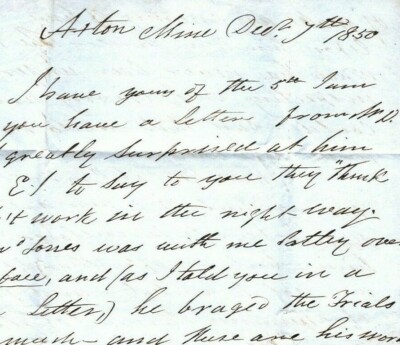 Aston Mine Decr. 7th 1850
I have yours of the 5th I am
you have a Letter from Mr D.
greatly surprised at him
E.S. to say to you they "Think
't work in the right way.
Jones was with me Satley over
face, and (as I told you in a
Letter,) he braged the Trials
much - and these are his wor